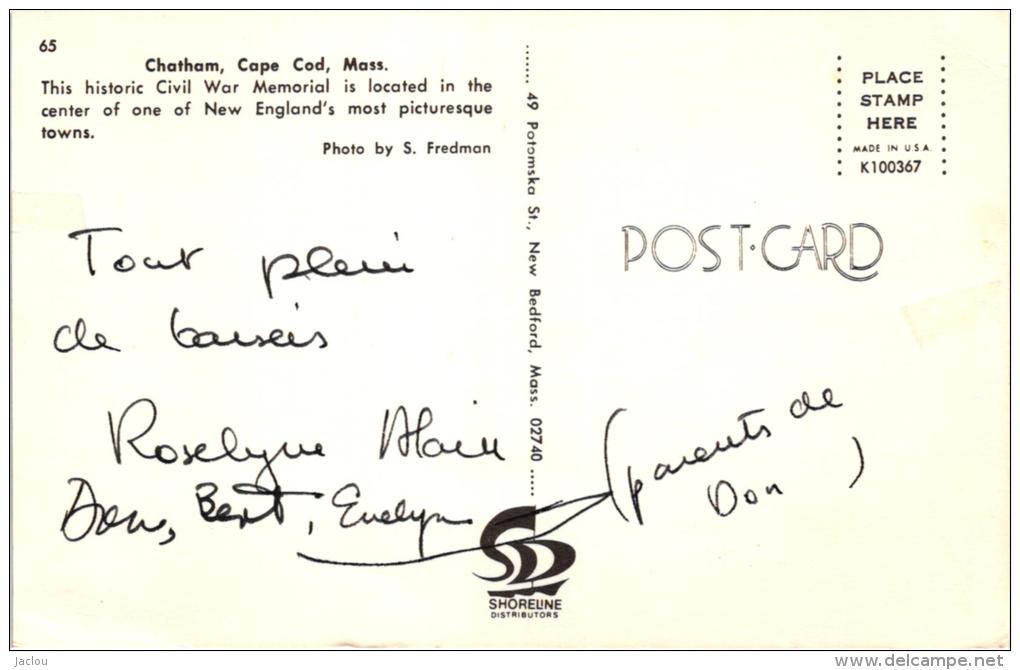 65
Chatham, Cape Cod, Mass.
This historic Civil War Memorial is located in the
center of one of New England's most picturesque
towns.
Photo by S. Fredman
Tout plein
de baisers
Roselyne Alain
Don, Bert, Evelyn
(parents de
Don)
....... 49 Potomska St., New Bedford, Mass. 02740 .....
SHORELINE
DISTRIBUTORS
PLACE
STAMP
HERE
MADE IN U.S.A.
K100367
POST·CARD
jaclou
www.delcampe.net